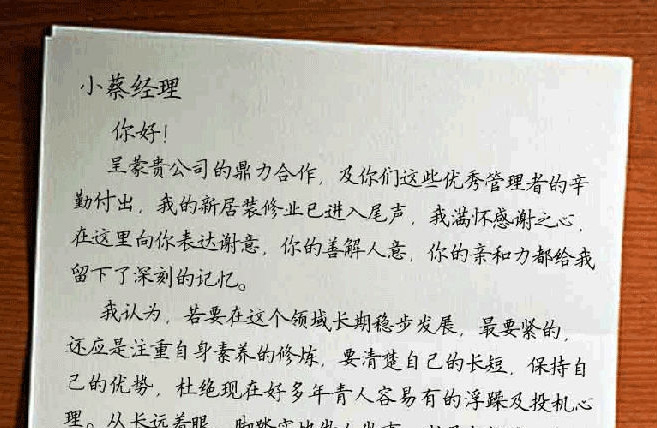 小蔡经理
你好！
呈蒙贵公司的鼎力合作，及你们这些优秀管理者的辛
勤付出，我的新居装修业已进入尾声，我满怀感谢之心，
在这里向你表达谢意，你的善解人意，你的亲和力都给我
留下了深刻的记忆。
我认为，若要在这个领域长期稳步发展，最要紧的，
还应是注重自身素养的修炼，要清楚自己的长短，保持自
己的优势，杜绝现在好多年青人容易有的浮躁及投机心
理。从长远着眼，脚踏实地